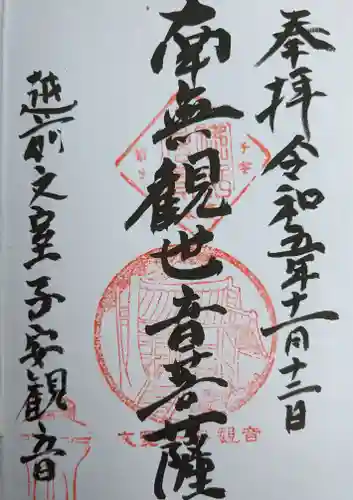 奉拝 令和五年十一月十二日
南無観世音菩薩
越前文室子安観音